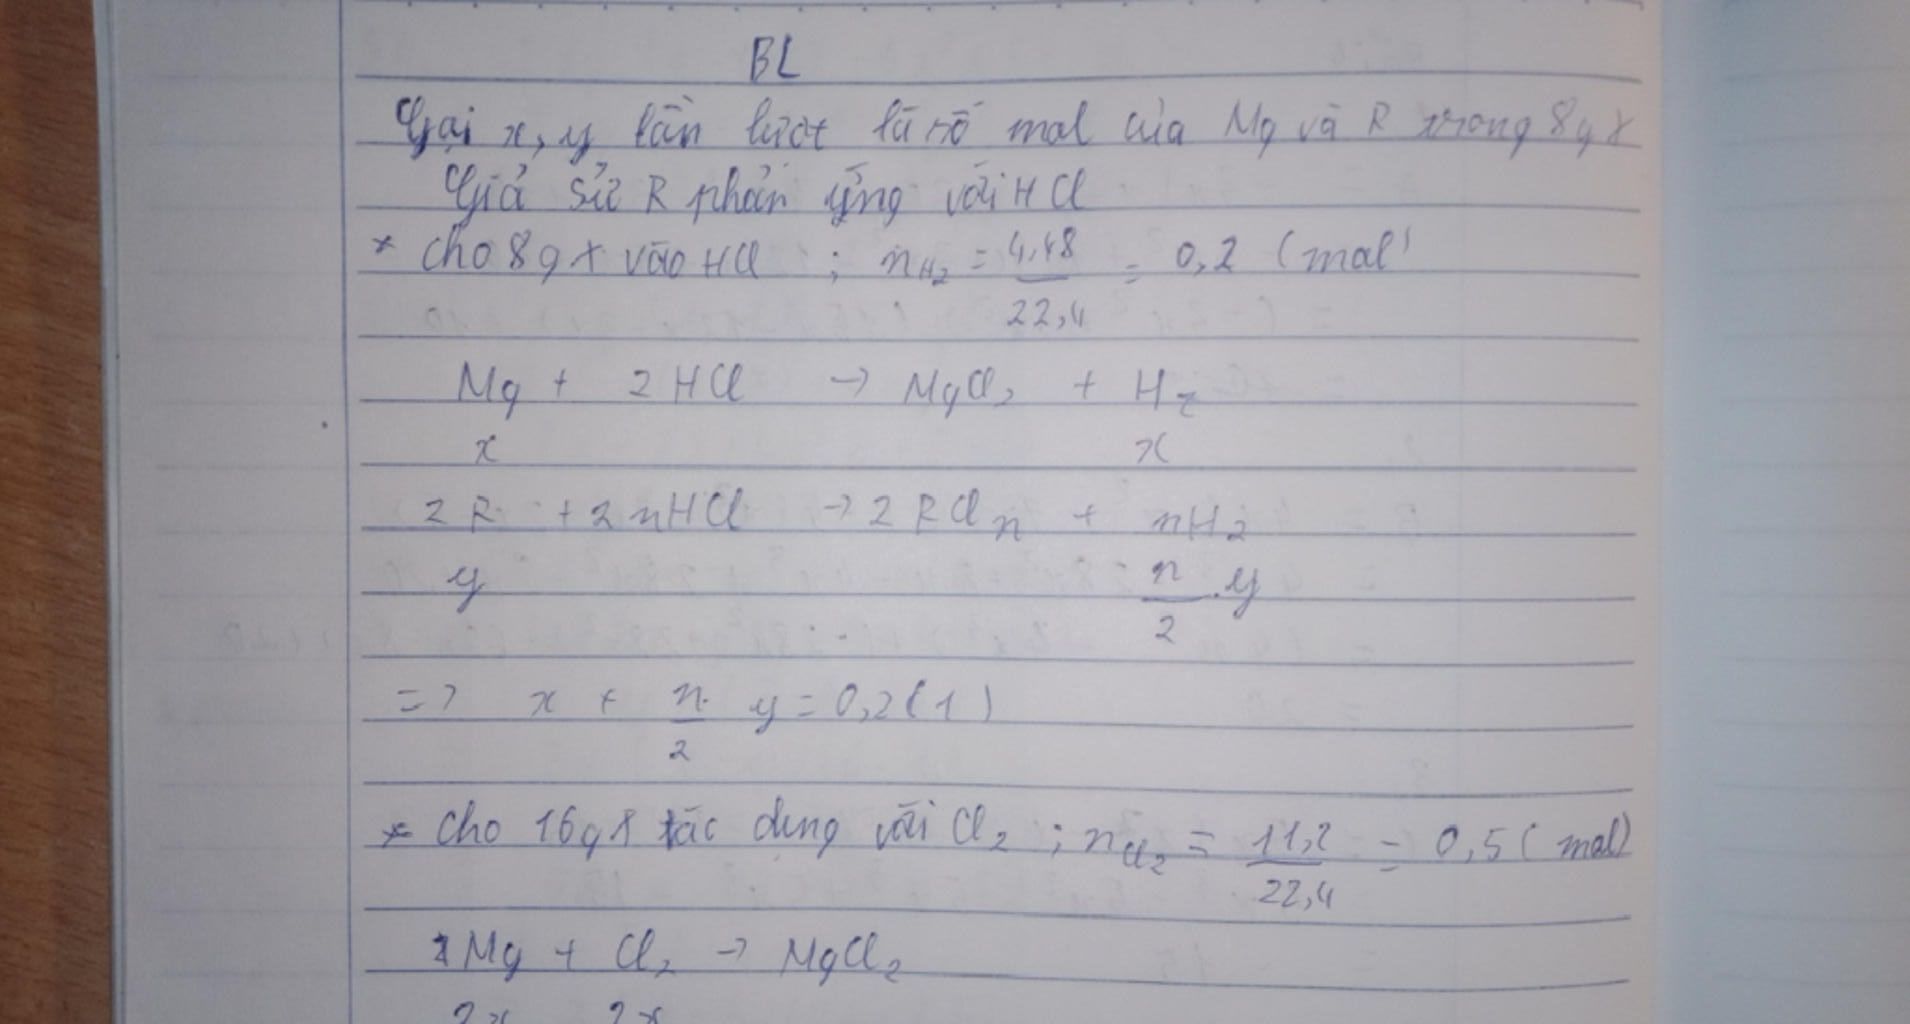 BL
Gọi x, y lần lượt là số mol của Mg và R trong 8g X
Giả sử R phản ứng với HCl
* cho 8g X vào HCl ; nH₂ = 4,48/22,4 = 0,2 (mol)
Mg + 2HCl → MgCl₂ + H₂
x x
2R + 2nHCl → 2RCln + nH₂
y n/2 .y
=> x + n/2 y = 0,2 (1)
* cho 16g X tác dụng với Cl₂ ; nCl₂ = 11,2/22,4 = 0,5 (mol)
Mg + Cl₂ → MgCl₂
2x 2x